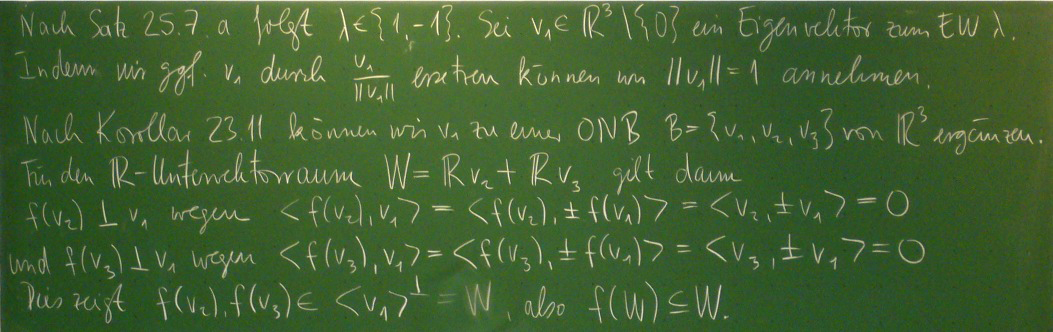 Nach Satz 25.7.a folgt λ∈{1,-1}. Sei v₁∈ℝ³\{0} ein Eigenvektor zum EW λ.
Indem wir ggf. v₁ durch v₁/||v₁|| ersetzen können wir ||v₁||=1 annehmen.
Nach Korollar 23.11 können wir v₁ zu einer ONB B={v₁,v₂,v₃} von ℝ³ ergänzen.
Für den ℝ-Untervektorraum W=ℝv₂+ℝv₃ gilt dann
f(v₂)⊥v₁ wegen <f(v₂),v₁> = <f(v₂),±f(v₁)> = <v₂,±v₁> = 0
und f(v₃)⊥v₁ wegen <f(v₃),v₁> = <f(v₃),±f(v₁)> = <v₃,±v₁> = 0
Dies zeigt f(v₂),f(v₃)∈<v₁>^⊥ = W, also f(W)⊆W.